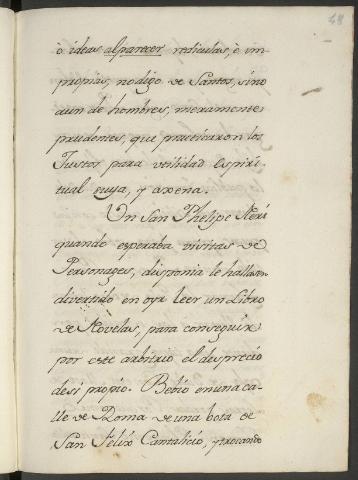 48
ò ideas alparecer rediculas, è im
propias, nodigo de Santos, sino
aun de hombres, meramente
prudentes, que practicaron los
Justos para utilidad espiri
tual suya, y axena.
Un San Phelipe Neri
quando esperaba visitas de
Personages, disponia le hallasen
divertido en oyr leer un Libro
de Novelas, para conseguir
por este arbitrio el desprecio
desi propio. Bebió enuna ca
lle de Roma de una bota de
San Felix Cantalicio, y trocando